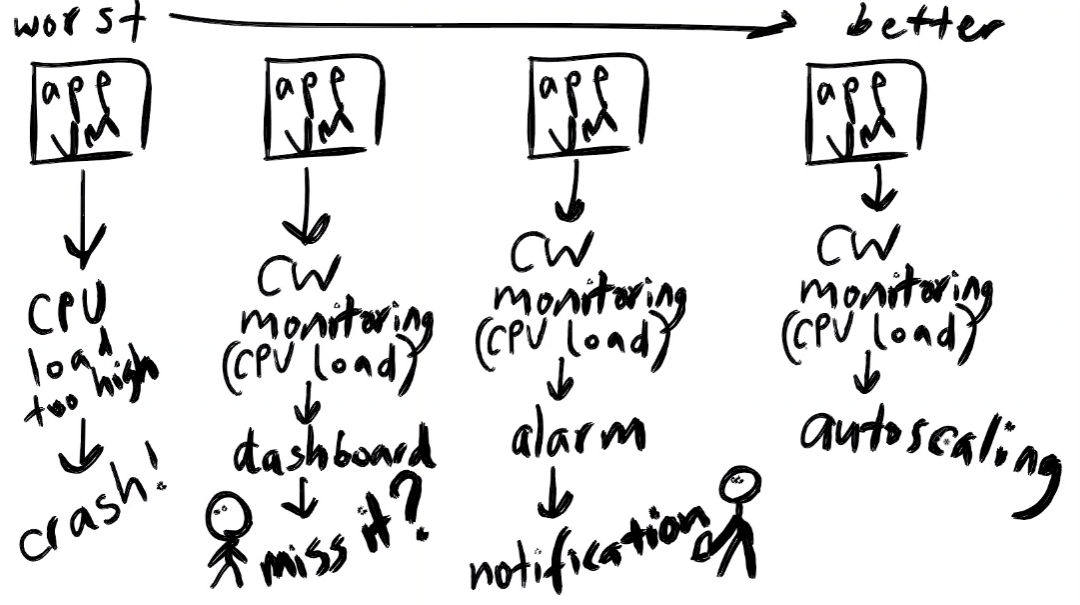 worst
better
app
VM
CPU
load
too high
crash!
app
VM
CW
monitoring
(CPU load)
dashboard
miss it?
app
VM
CW
monitoring
(CPU load)
alarm
notification
app
VM
CW
monitoring
(CPU load)
autoscaling